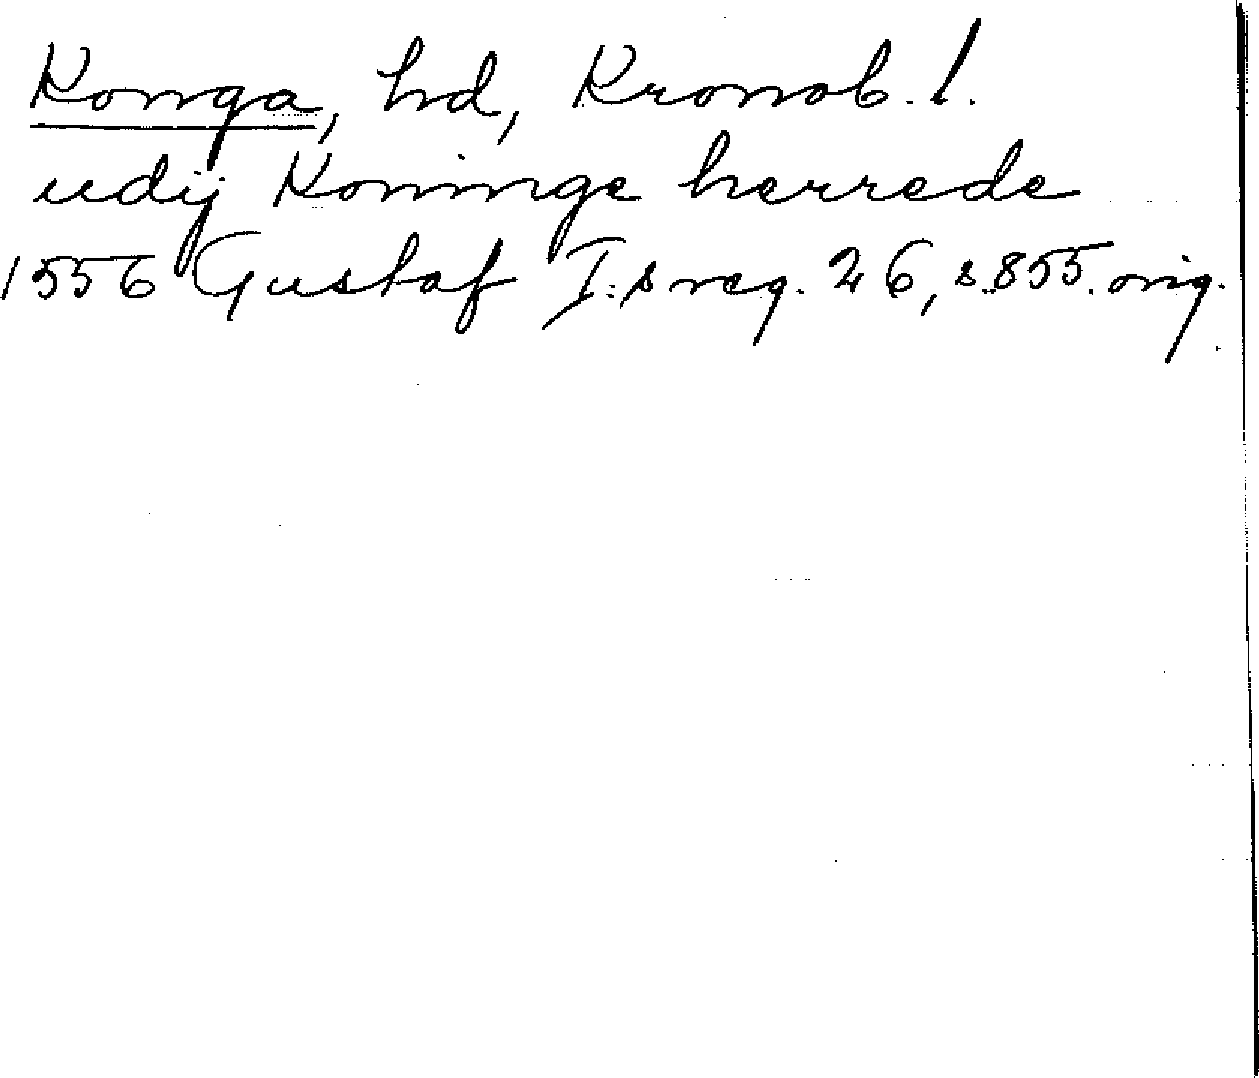 Konga, hd, Kronob. l.
udij Koninge herrede
1556 Gustaf I:s reg. 26, s. 855. orig.